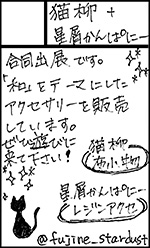 猫柳 +
星屑かんぱにー
合同出展です。
「和」をテーマにした
アクセサリーを販売
しています。
ぜひ遊びに
来て下さい!
猫柳
布小物
星屑かんぱにー
レジンアクセ
@fujine_stardust